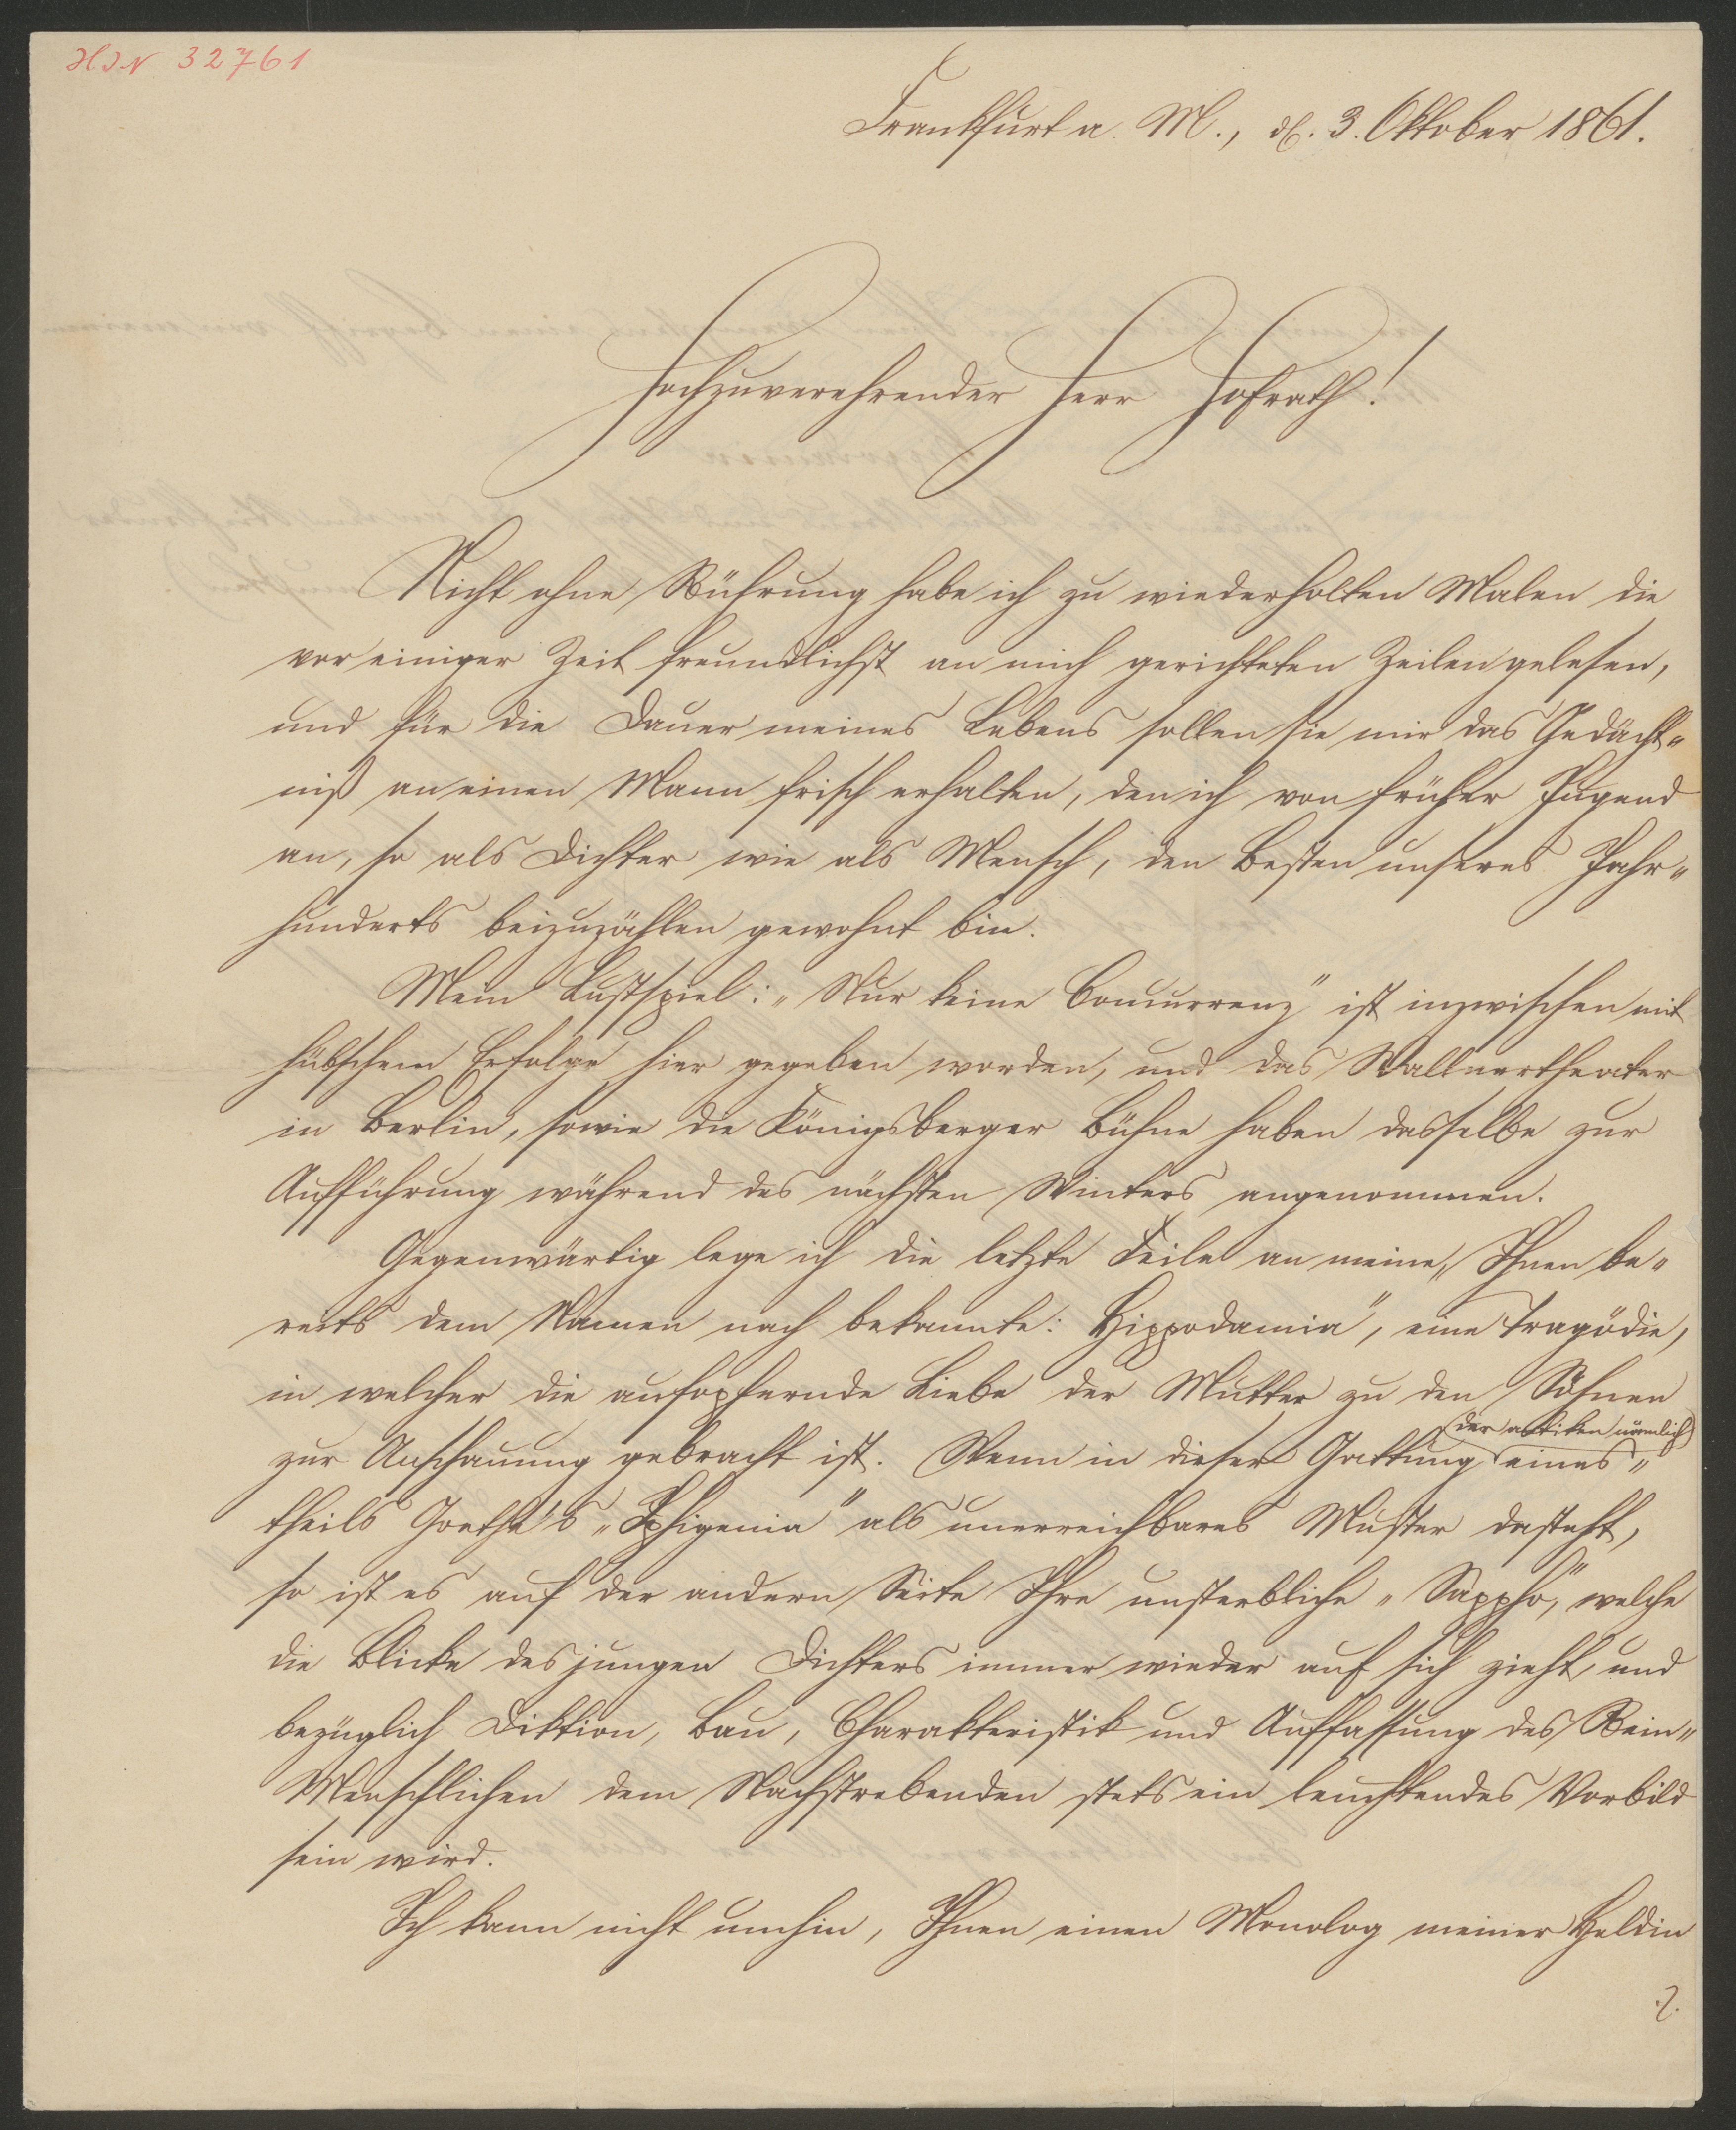 HIN 32761
Frankfurt a. M., d. 3. Oktober 1861.
Hochzuverehrender Herr Hofrath!
Nicht ohne Rührung habe ich zu wiederholten Malen die
vor einiger Zeit freundlichst an mich gerichteten Zeilen gelesen,
und für die Dauer meines Lebens sollen sie mir das Gedächt„
niß an einen Mann frisch erhalten, den ich von früher Jugend
an, so als Dichter wie als Mensch, den Besten unseres Jahr„
hunderts beizuzählen gewohnt bin.
Mein Lustspiel: „Nur keine Concurrenz" ist inzwischen mit
hübschem Erfolge hier gegeben worden, und das Wallnertheater
in Berlin, sowie die Königsberger Bühne haben dasselbe zur
Aufführung während des nächsten Winters angenommen.
Gegenwärtig lege ich die letzte Feile an meine, Ihnen be„
reits dem Namen nach bekannte: Hippodamia", eine Tragödie,
in welcher die aufopfernde Liebe der Mutter zu den Söhnen
(der antiken nämlich)
zur Anschauung gebracht ist. Wenn in dieser Gattung eines„
theils Goethe's „Iphigenia" als unerreichbares Muster dasteht,
so ist es auf der andern Seite Ihre unsterbliche „Sappho", welche
die Blicke des jungen Dichters immer wieder auf sich zieht, und
bezüglich Diktion, Bau, Charakteristik und Auffassung des Rein„
Menschlichen dem Nachstrebenden stets ein leuchtendes Vorbild
sein wird.
Ich kann nicht umhin, Ihnen einen Monolog meiner Heldin